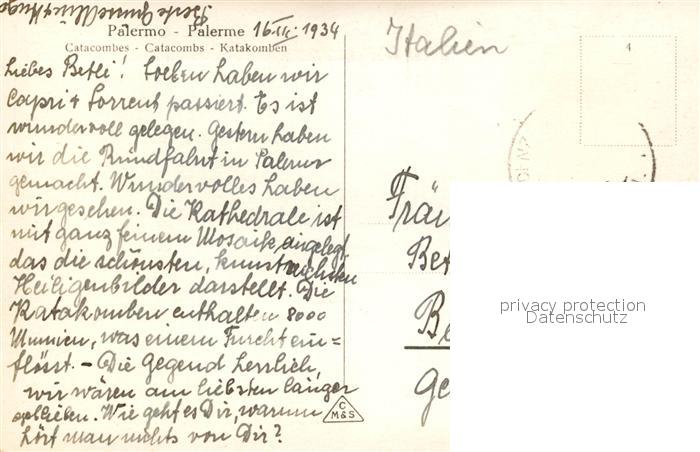 Beste Grüsse
Palermo - Palerme 16. III. 1934
Catacombes - Catacombs - Katakomben
Italien
4
Liebes Betli! Soeben haben wir
Capri & Sorrent passiert. Es ist
wundervoll gelegen. Gestern haben
wir die Rundfahrt in Palermo
gemacht. Wundervolles haben
wir gesehen. Die Kathedrale ist
mit ganz feinem Mosaik eingelegt
das die schönsten, kunstreichsten
Heiligenbilder darstellt. Die
Katakomben enthalten 8000
Mumien, was einem Furcht ein=
flösst. - Die Gegend herrlich,
wir wären am liebsten länger
geblieben. Wie geht es Dir, warum
hört man nichts von Dir?
C
M&S
Fräu
Bet
Be
Ge
privacy protection
Datenschutz